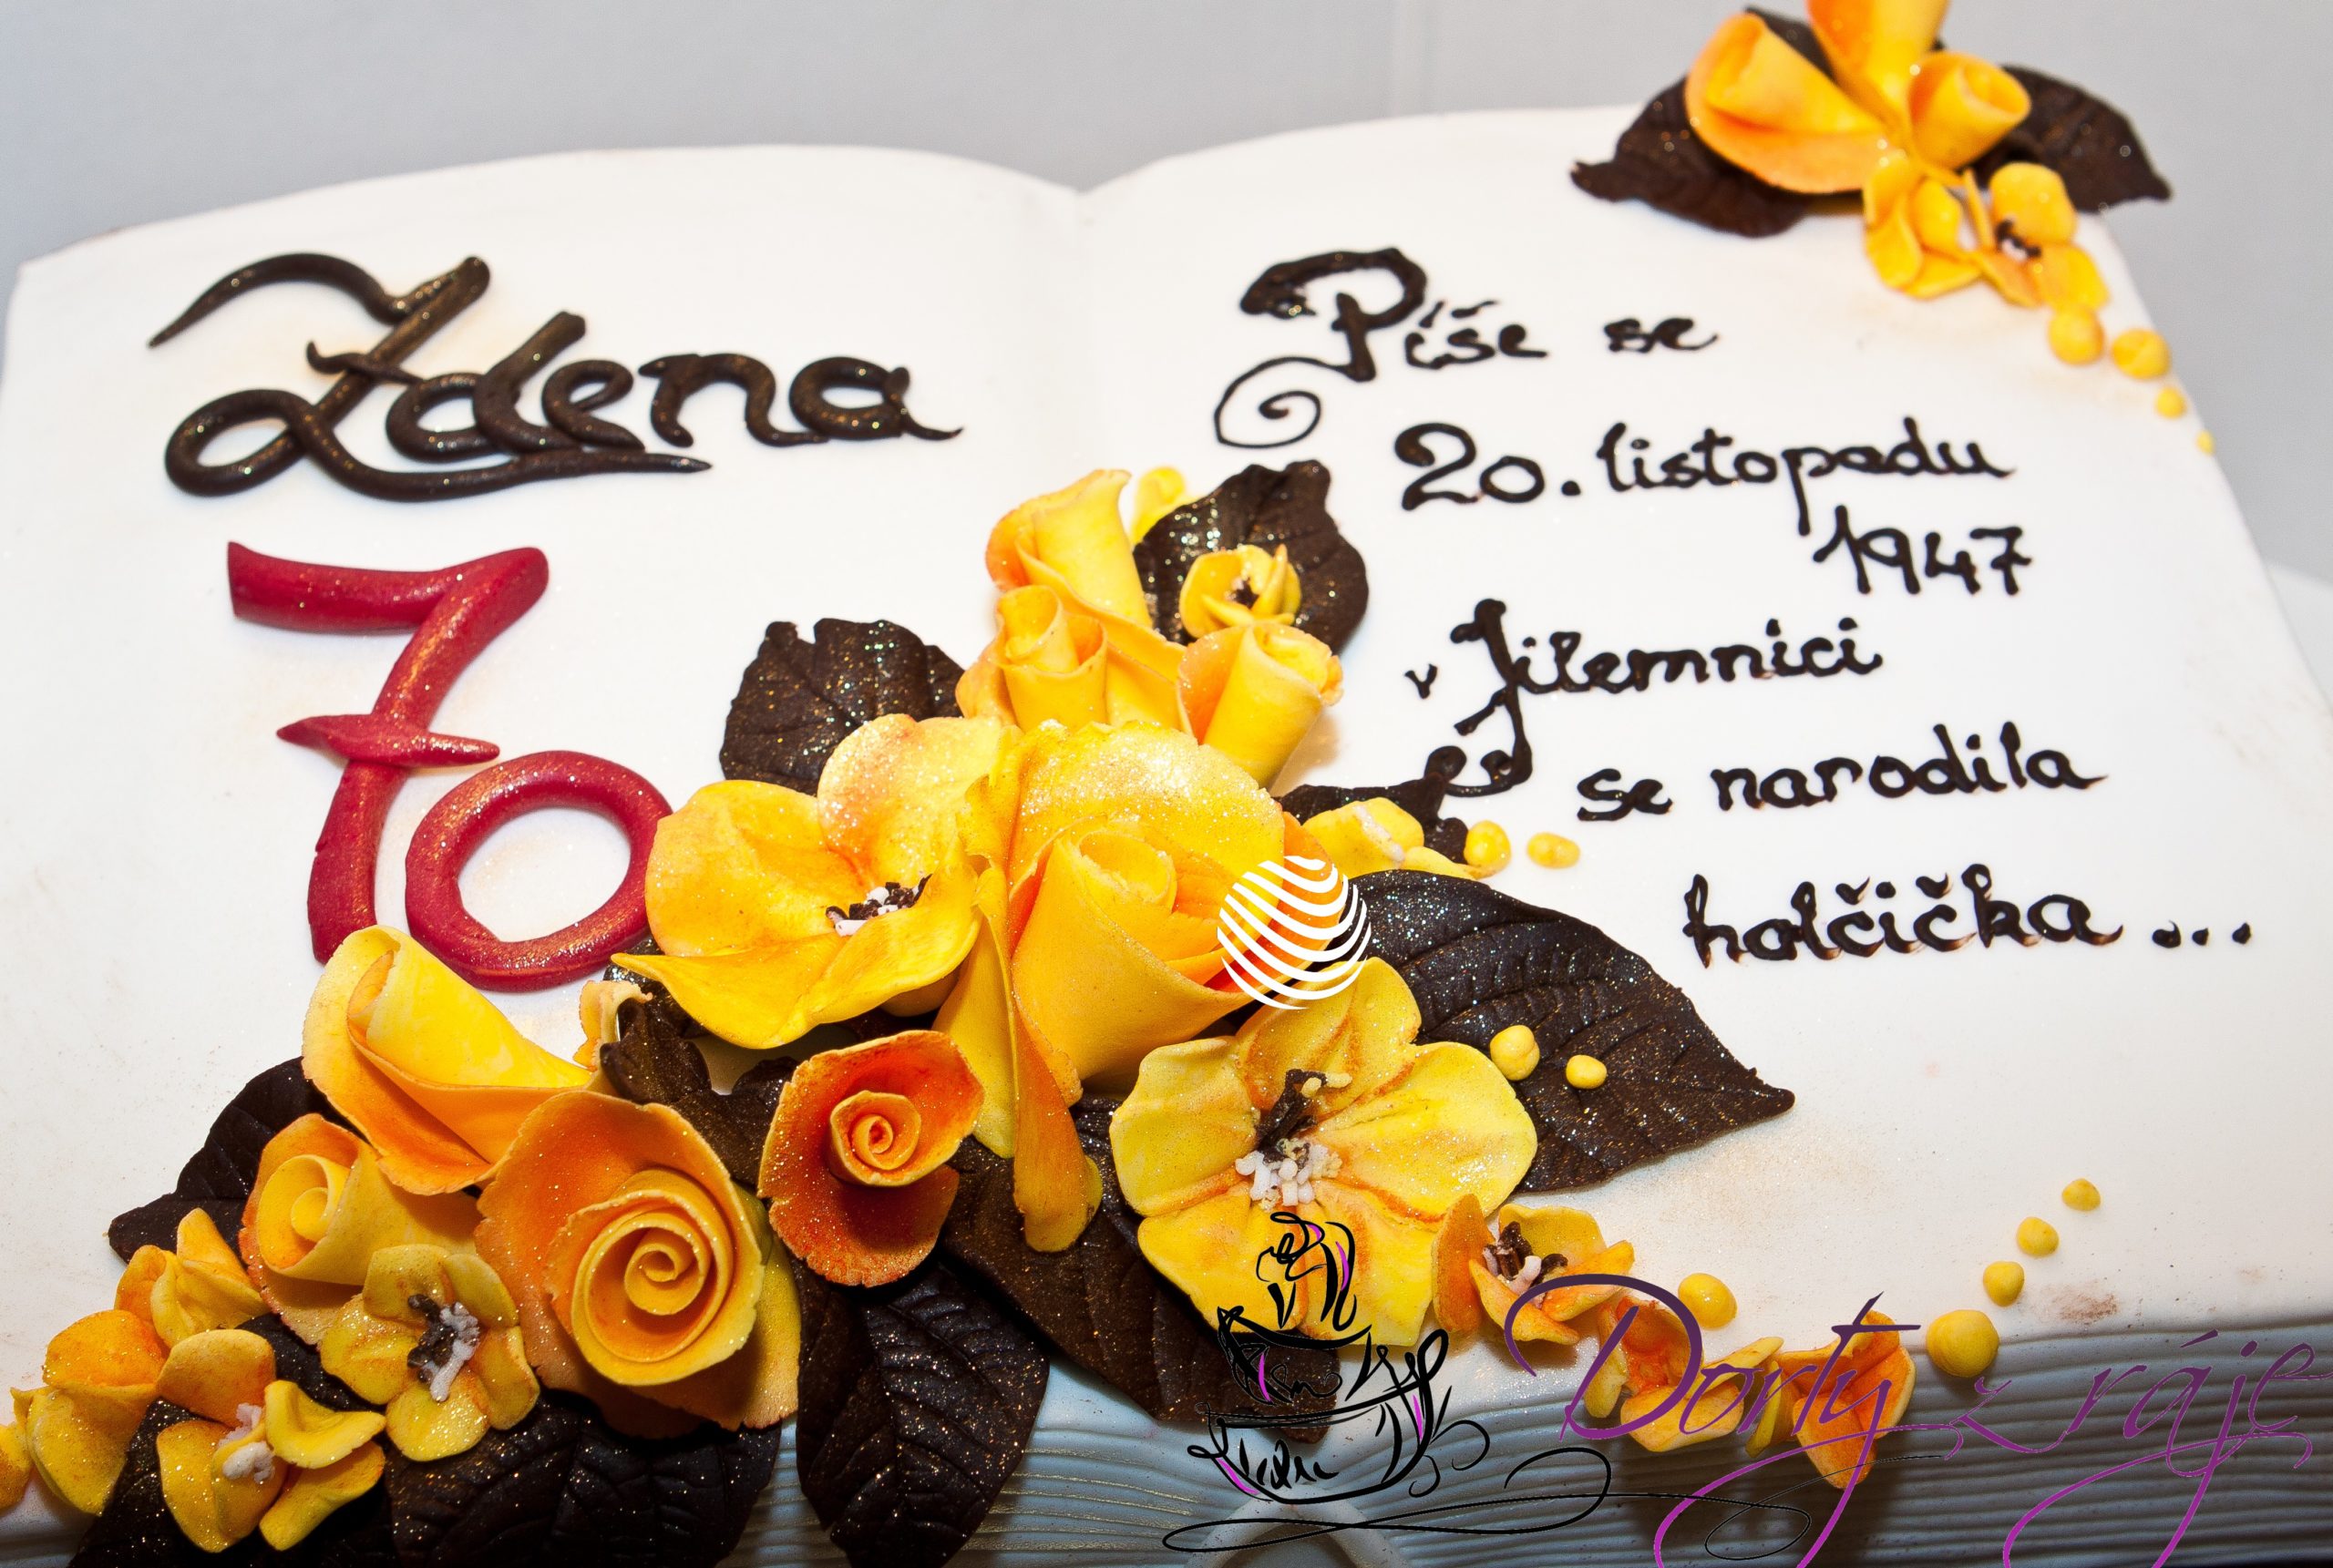 Zdena
70
Píše se
20. listopadu
1947
v Jilemnici
se narodila
holčička...
Dorty z ráje